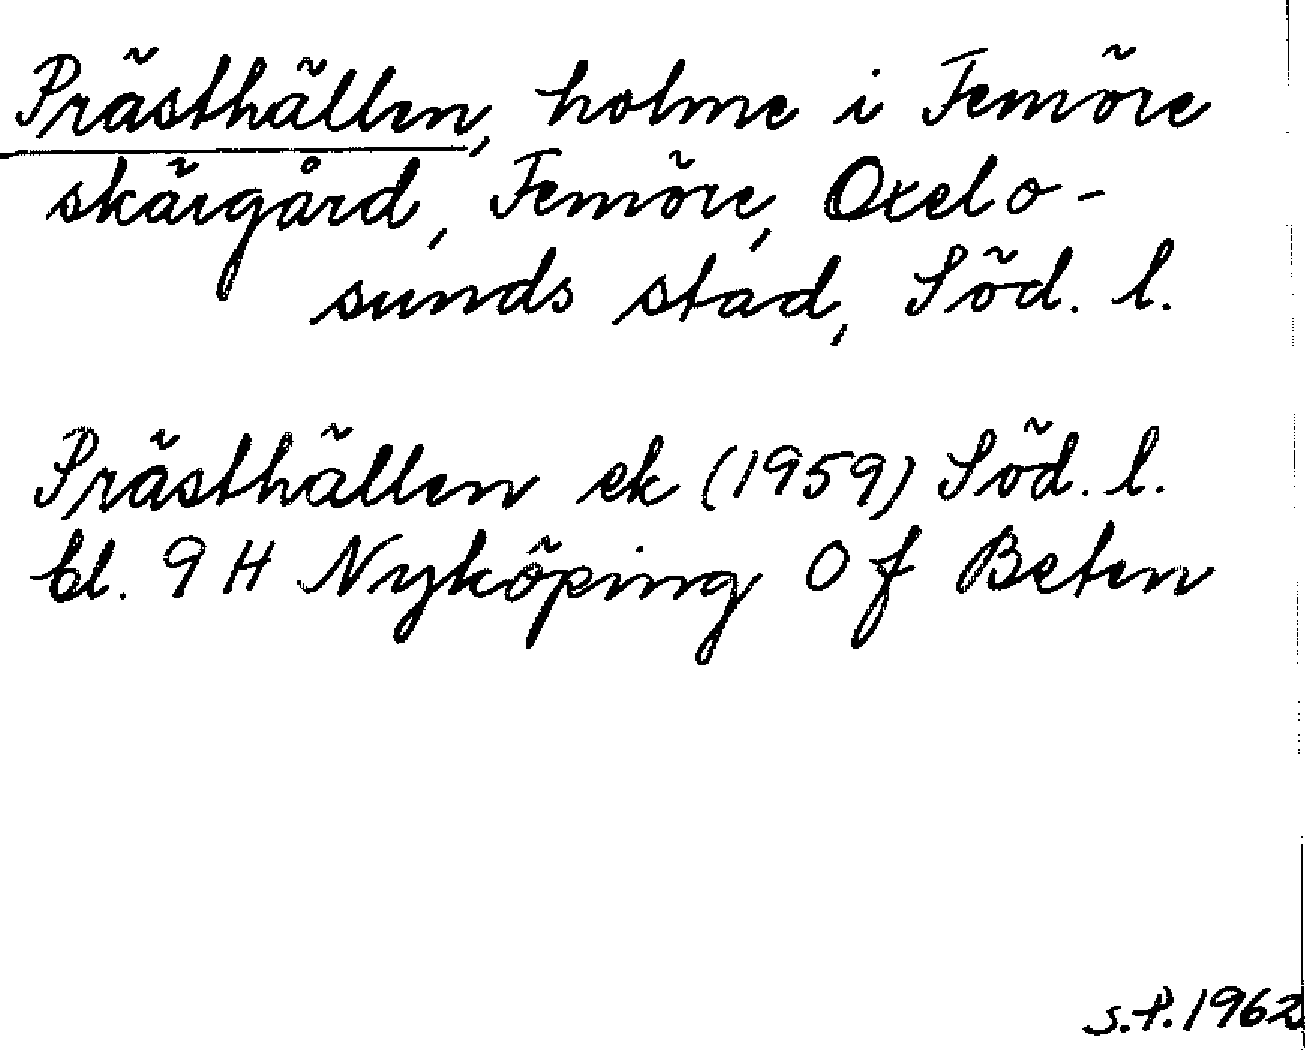 Prästhällen, holme i Femöre
skärgård, Femöre, Oxelo-
sunds stad, Söd. l.
Prästhällen ek (1959) Söd. l.
bl. 9 H Nyköping 0 f Beten
S.P. 1962